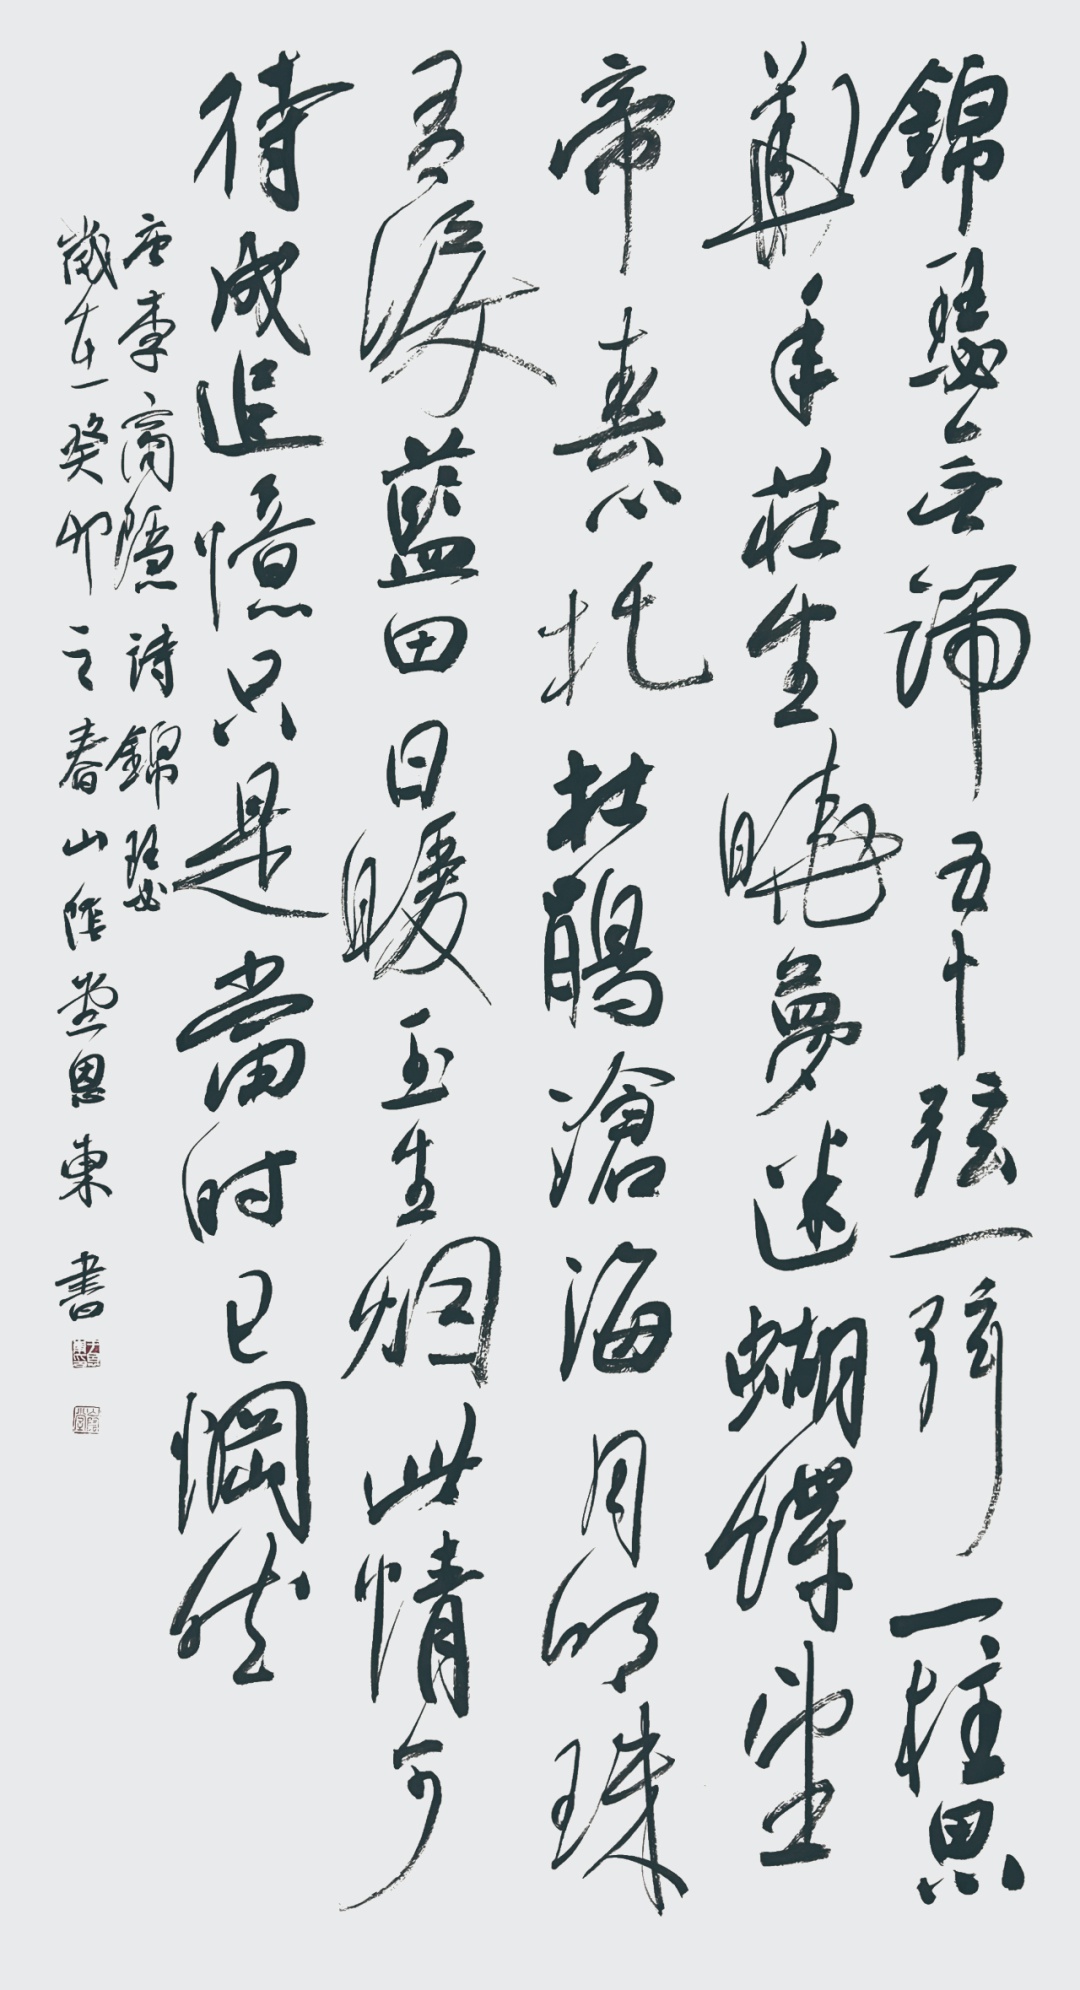 錦瑟无端五十弦一弦一柱思
華年莊生曉夢迷蝴蝶望
帝春心托杜鵑滄海月明珠
有淚藍田日暖玉生烟此情可
待成追憶只是當时已惘然
唐李商隱詩錦瑟
歲在癸卯之春山陰恩東書